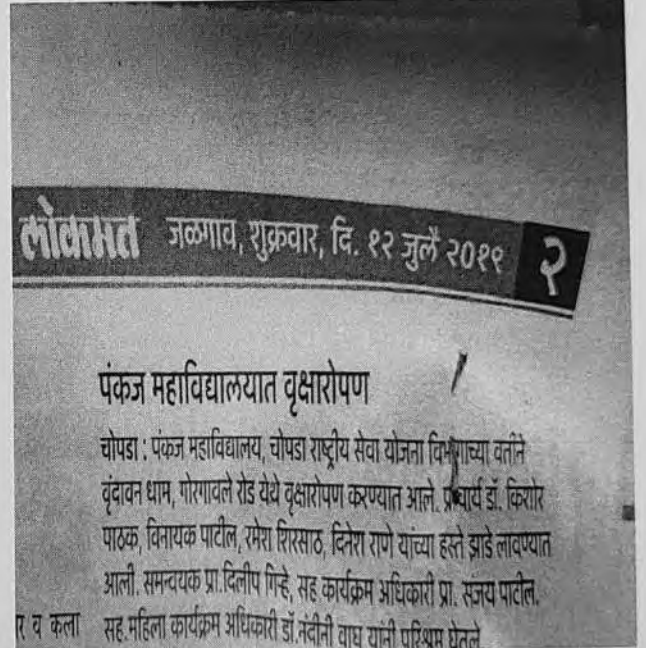 लोकमत जळगाव, शुक्रवार, दि. १२ जुलै २०१९ २
पंकज महाविद्यालयात वृक्षारोपण
चोपडा : पंकज महाविद्यालय, चोपडा राष्ट्रीय सेवा योजना विभागाच्या वतीने
वृंदावन धाम, गोरगावले रोड येथे वृक्षारोपण करण्यात आले. प्राचार्य डॉ. किशोर
पाठक, विनायक पाटील, रमेश शिरसाठ, दिनेश राणे यांच्या हस्ते झाडे लावण्यात
आली. समन्वयक प्रा.दिलीप गिऱ्हे, सह कार्यक्रम अधिकारी प्रा. संजय पाटील.
सह.महिला कार्यक्रम अधिकारी डॉ.नंदीनी वाघ यांनी परिश्रम घेतले
र व कला